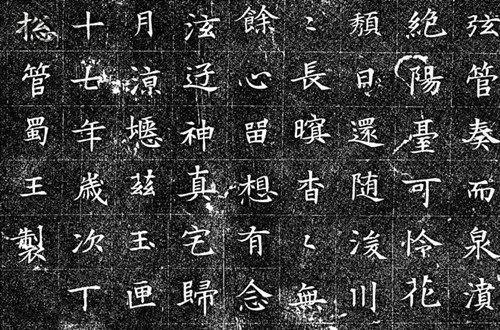 弦管奏而泉濆
絕陽臺可怜花
頹日還随浚川
〻長暝杳〻無
餘心留想有念
泫迎神真宅歸
月涼瘞茲玉匣
十七年歲次丁
揔管蜀王製